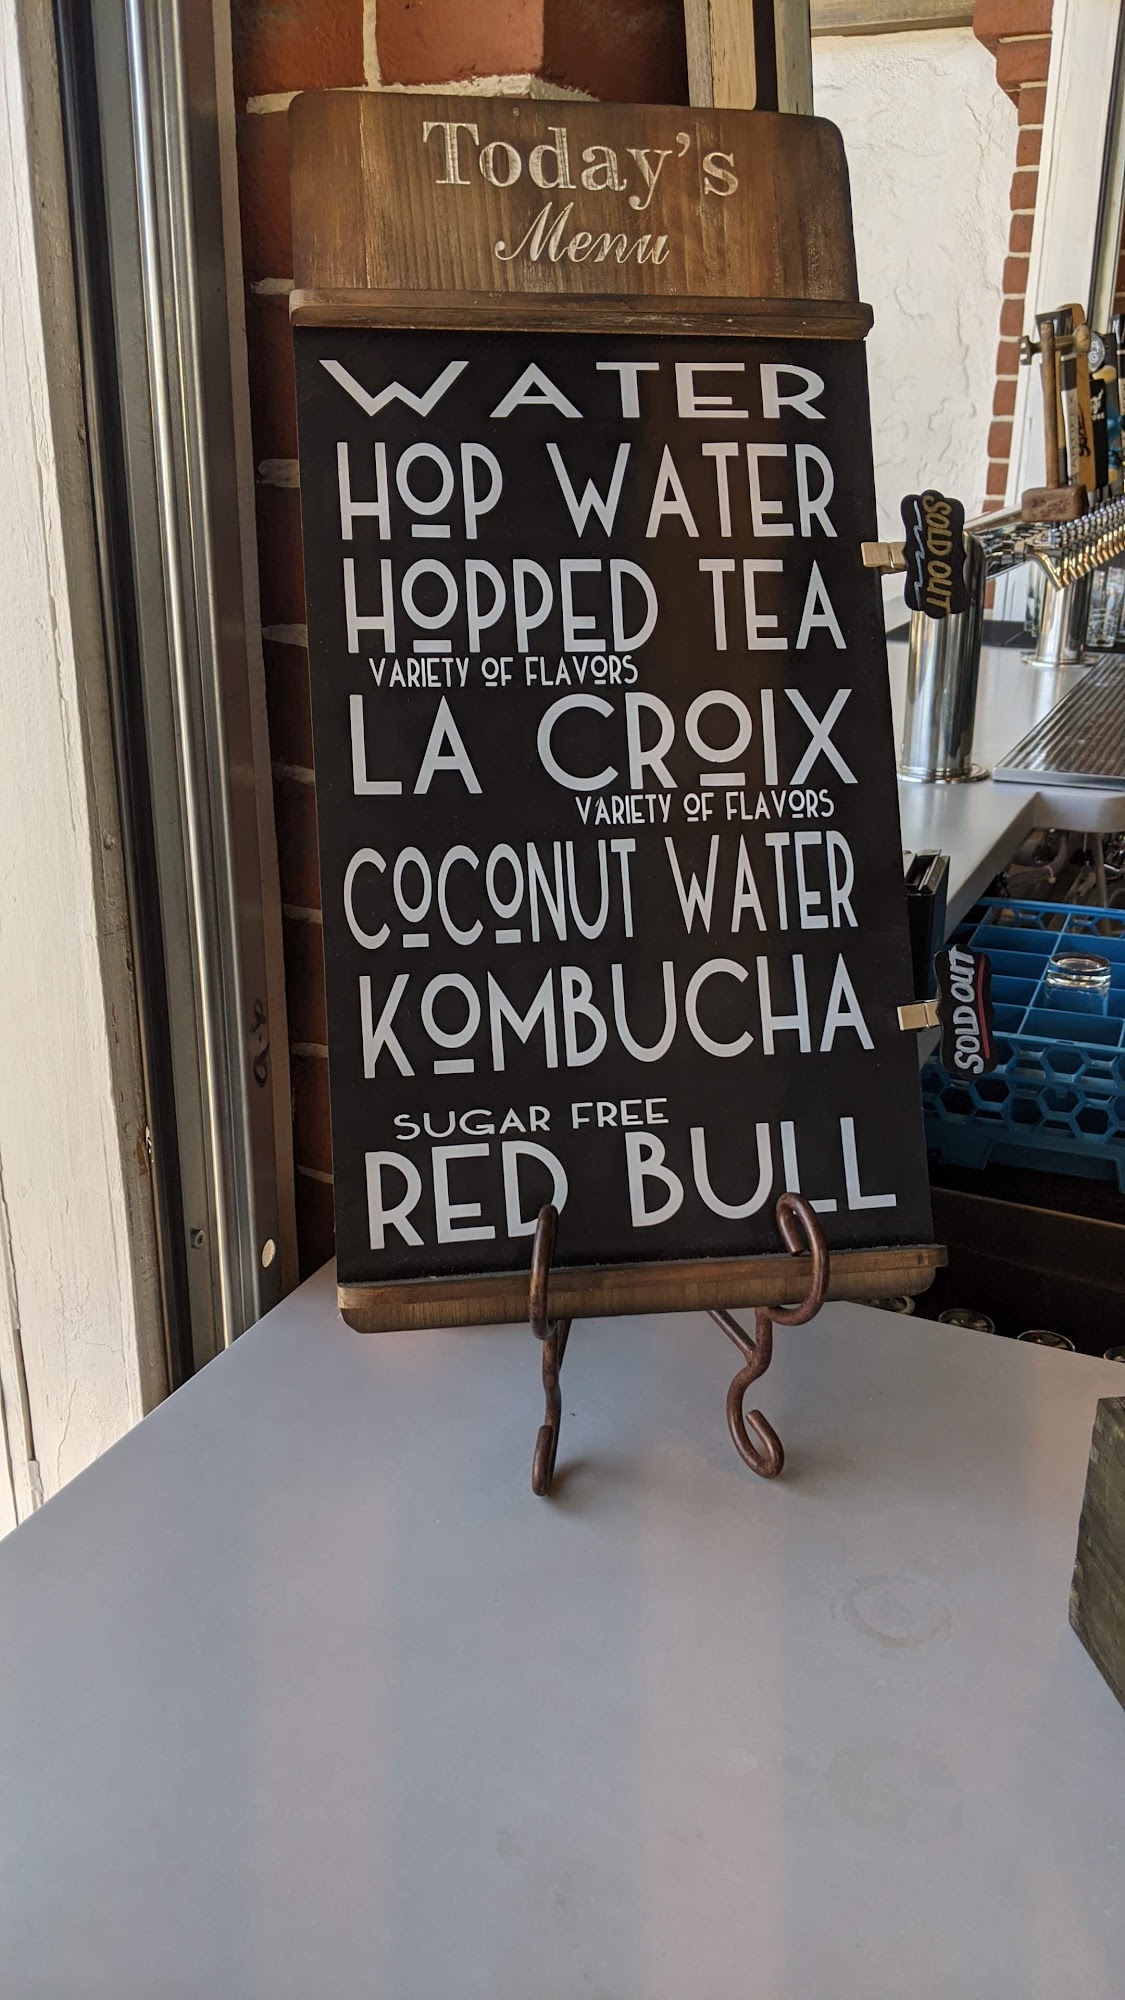 Today's
Menu
WATER
HOP WATER
SOLD OUT
HOPPED TEA
VARIETY OF FLAVORS
LA CROIX
VARIETY OF FLAVORS
COCONUT WATER
KOMBUCHA
SOLD OUT
SUGAR FREE
RED BULL